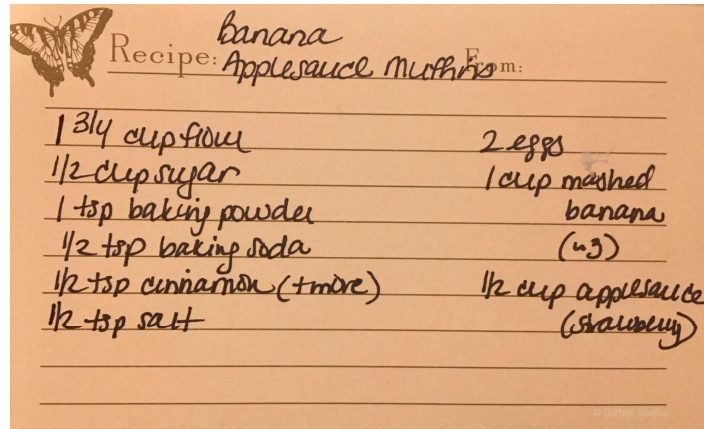 Banana
Recipe: Applesauce Muffins From:
1 3/4 cup flour
1/2 cup sugar
1 tsp baking powder
1/2 tsp baking soda
1/2 tsp cinnamon (+more)
1/2 tsp salt
2 eggs
1 cup mashed
banana
(~3)
1/2 cup applesauce
(strawberry)
© Gartner Studios